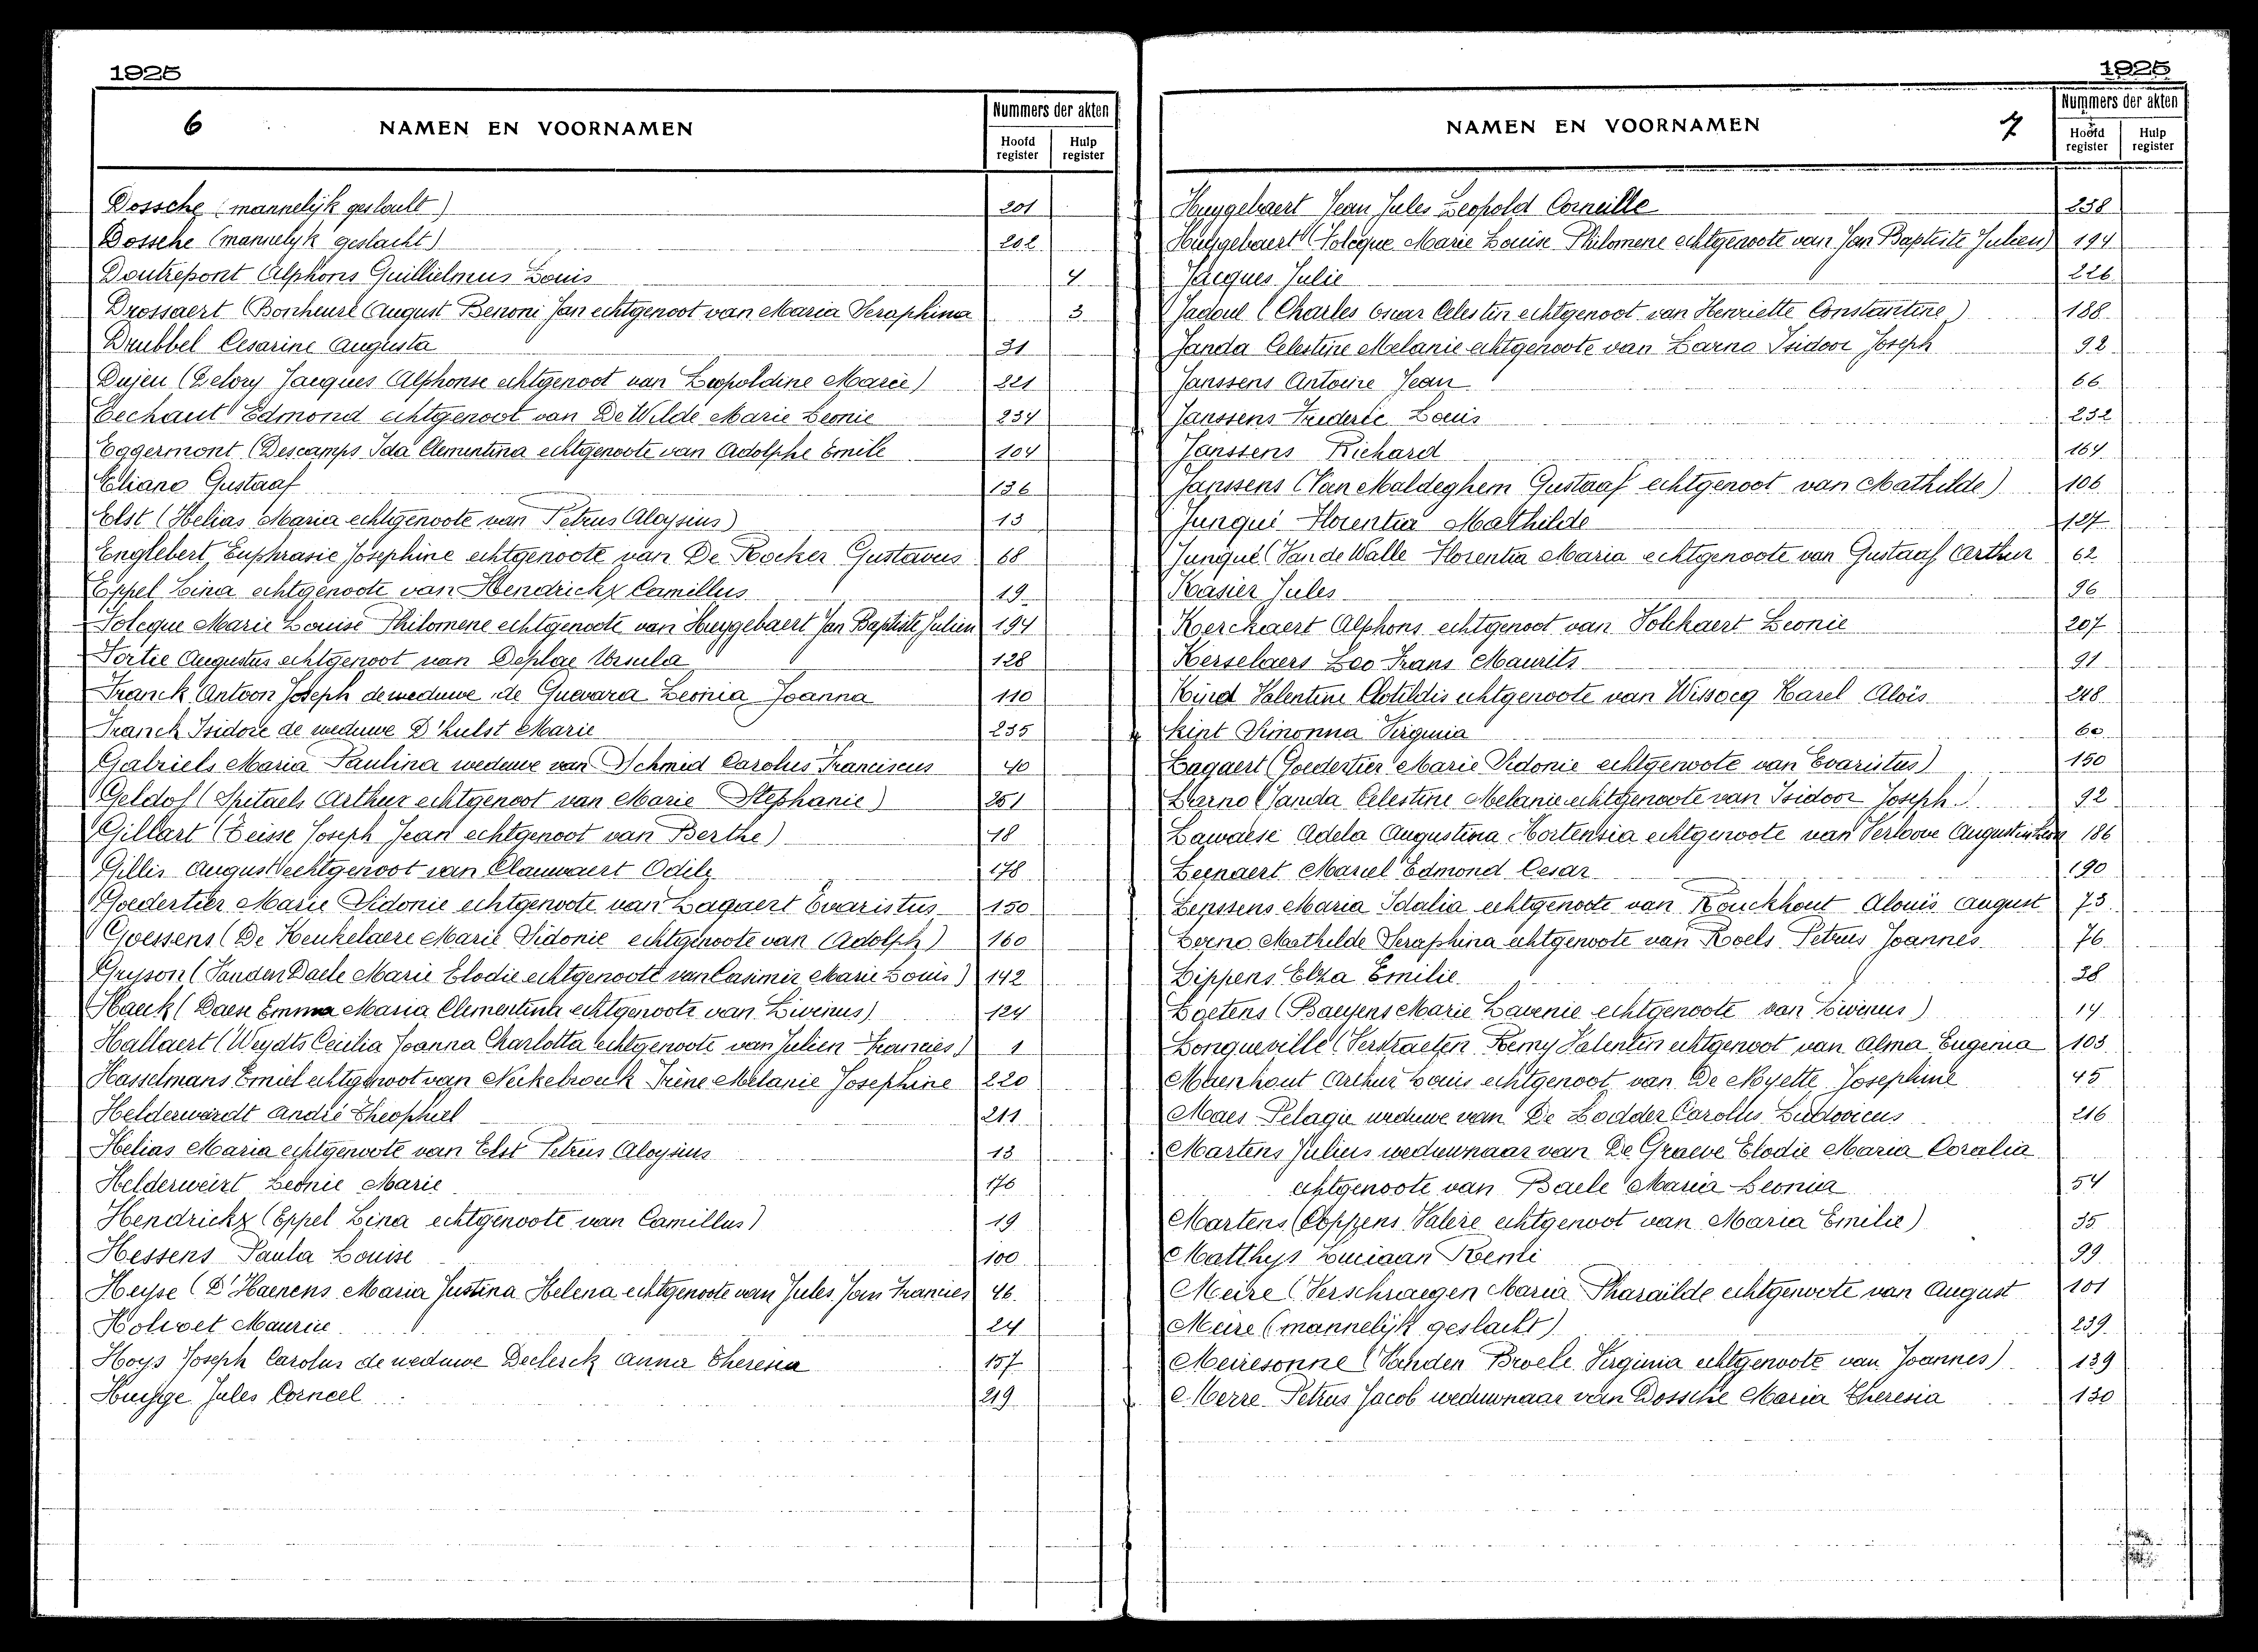 1925
6 NAMEN EN VOORNAMEN
Nummers der akten
Hoofd register Hulp register
Dossche (mannelijk geslacht) 201
Dossche (mannelyk geslacht) 202
Doutrepont Alphons Guillielmus Louis 4
Drossaert (Bonheure August Benoni Jan echtgenoot van Maria Seraphina 3
Drubbel Cesarine Augusta 31
Dujeu (Delory Jacques Alphonse echtgenoot van Leopoldine Marie) 221
Eechaut Edmond echtgenoot van De Wilde Marie Leonie 234
Eggermont (Descamps Ida Clementina echtgenoote van Adolphe Emile 104
Eliano Gustaaf 136
Elst (Helias Maria echtgenoote van Petrus Aloysius) 13
Englebert Euphrasie Josephine echtgenoote van De Pöcker Gustavus 68
Eppel Lina echtgenoote van Hendrickx Camillus 19
Foleque Marie Louise Philomene echtgenoote van Huygebaert Jan Baptiste Julien 194
Fortie Augustus echtgenoot van Deplae Ursula 128
Franck Antoon Joseph de weduwe de Guevara Leonia Joanna 110
Franck Isidore de weduwe D'hulst Marie 235
Gabriels Maria Paulina weduwe van Schmid Carolus Franciscus 40
Geldof (Spitaels Arthur echtgenoot van Marie Stephanie) 251
Gillart (Leisse Joseph Jean echtgenoot van Berthe) 18
Gillis August echtgenoot van Clauwaert Odile 178
Goedertier Marie Sidonie echtgenoote van Lagaert Evaristus 150
Goessens (De Keukelaere Marie Sidonie echtgenoote van Adolph) 160
Gryson (Vanden Daele Marie Elodie echtgenoote van Casimir Marie Louis) 142
Haeck (Daese Emma Maria Clementina echtgenoote van Livinus) 124
Hallaert (Weydts Cecilia Joanna Charlotta echtgenoote van Julien Francies) 1
Hasselmans Emiel echtgenoot van Neckebrouck Irène Melanie Josephine 220
Helderwerdt André Theophiel 211
Helias Maria echtgenoote van Elst Petrus Aloysius 13
Helderweirt Leonie Marie 176
Hendrickx (Eppel Lina echtgenoote van Camillus) 19
Hessens Paula Louise 100
Heyse (D'Haenens Maria Justina Helena echtgenoote van Jules Jan Francies 46
Holvoet Maurice 24
Hoys Joseph Carolus de weduwe Declerck Anna Theresia 157
Huysge Jules Corneel 219
1925
NAMEN EN VOORNAMEN 7
Nummers der akten
Hoofd register Hulp register
Huygebaert Jean Jules Leopold Corneille 238
Huygebaert (Foleque Marie Louise Philomene echtgenoote van Jan Baptiste Julien) 194
Jacques Julie 226
Jadoul (Charles Oscar Celestin echtgenoot van Henriette Constantine) 188
Janda Celestine Melanie echtgenoote van Larno Isidoor Joseph 92
Janssens Antoine Jean 66
Janssens Frederic Louis 232
Janssens Richard 164
Janssens (Van Maldeghem Gustaaf echtgenoot van Mathilde) 106
Junqué Florentia Mathilde 127
Junqué (Van de Walle Florentia Maria echtgenoote van Gustaaf Arthur 62
Kasier Jules 96
Kerchaert Alphons echtgenoot van Volckaert Leonie 207
Kerselaers Leo Frans Maurits 91
Kind Valentine Clotildis echtgenoote van Wissocq Karel Aloïs 248
Kint Simonna Virginia 60
Lagaert (Goedertier Marie Sidonie echtgenoote van Evaristus) 150
Larno (Janda Celestine Melanie echtgenoote van Isidoor Joseph) 92
Lawaese Adela Augustina Hortensia echtgenoote van Verloove Augustin Leon 186
Leenaert Marcel Edmond Cesar 190
Lenssens Maria Idalia echtgenoote van Rouckhout Aloüis August 73
Lerno Mathilde Seraphina echtgenoote van Roels Petrus Joannes 76
Lippens Elza Emilie 38
Loetens (Bauyens Marie Lavenie echtgenoote van Livinus) 14
Lonqueville (Verstraeten Remy Valentin echtgenoot van Alma Eugenia 103
Maenhout Arthur Louis echtgenoot van De Moyette Josephine 45
Maes Pelagie weduwe van De Lodder Carolus Ludovicus 216
Martens Julius weduwnaar van De Graeve Elodie Maria Coralia
echtgenoote van Baele Maria Leonia 54
Martens (Coppens Valere echtgenoot van Maria Emilie) 35
Matthys Luciaan Remi 99
Meire (Verschraegen Maria Pharaïlde echtgenoote van August 101
Meire (mannelijk geslacht) 239
Meiresonne (Vanden Broele Virginia echtgenoote van Joannes) 139
Merre Petrus Jacob weduwnaar van Dossche Maria Theresia 130